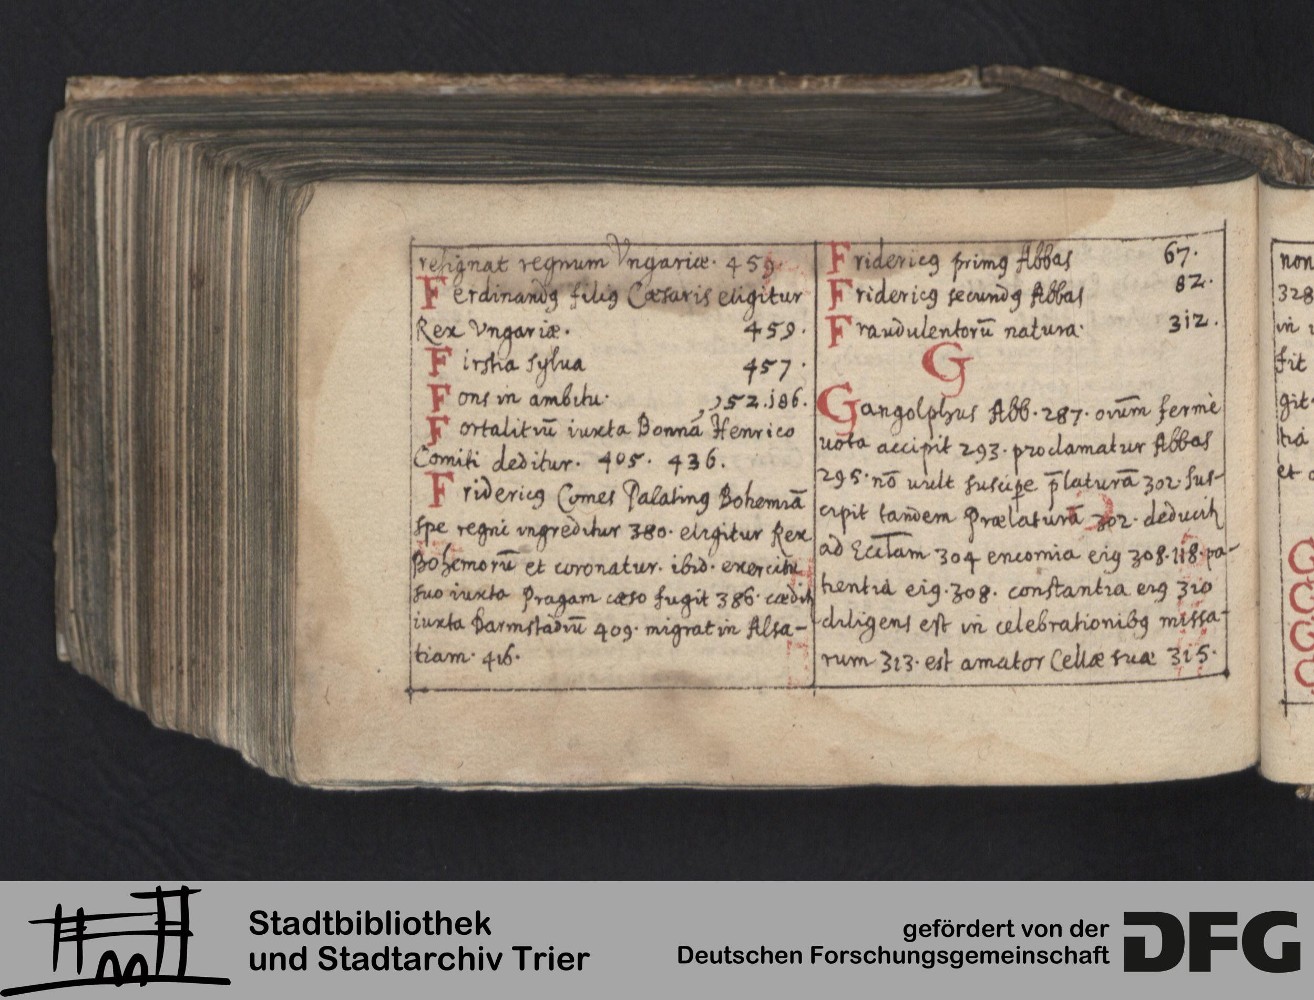 resignat regnum Vngariæ. 459.
Ferdinandꝰ filiꝰ Cæsaris eligitur
Rex Vngariæ. 459.
Firstia sylua 457.
Fons in ambitu. 52. 186.
Fortalitiū iuxta Bonnā Henrico
Comiti deditur. 405. 436.
Fridericꝰ Comes Palatinꝰ Bohemiā
spe regni ingreditur 380. eligitur Rex
Bohemorū et coronatur. ibid. exercitu
suo iuxta Pragam cæso fugit 386. cædit
iuxta Darmstadiū 409. migrat in Alsa-
tiam. 416.
Fridericꝰ primꝰ Abbas 67.
Fridericꝰ secundꝰ Abbas 82.
Fraudulentorū natura. 312.
G
Gangolphus Abb. 287. oīum fermè
uota accipit 293. proclamatur Abbas
295. nō uult suscipe p̄laturā 302. sus-
cipit tandem Prælaturā 302. deducit
ad Eccl̄am 304 encomia eiꝰ 308. 118. pa-
tientia eiꝰ. 308. constantia eiꝰ 310
diligens est in celebrationibꝰ missa-
rum 313. est amator Cellæ suæ 315.
non
328
in
fit
git.
tia
et
Stadtbibliothek
und Stadtarchiv Trier
gefördert von der
Deutschen Forschungsgemeinschaft
DFG